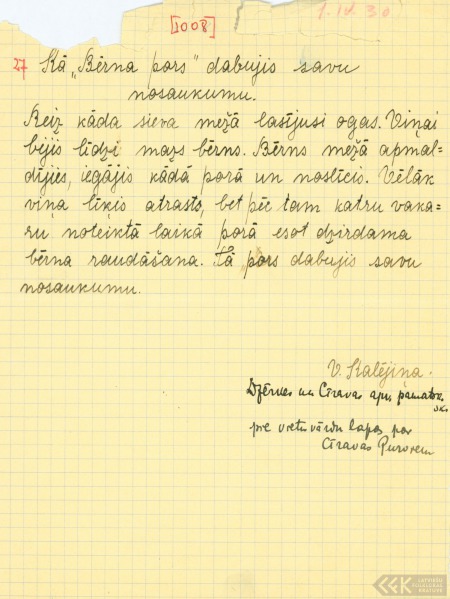 [1008]
1. IV. 30
27 Kā „Bērna pors" dabujis savu
nosaukumu.
Reiz kāda sieva mežā lasījusi ogas. Viņai
bējis līdzi mazs bērns. Bērns mežā apmal=
dījies, iegājis kādā porā un noslīcis. Vēlāk
viņa līķis atrasts, bet pēc tam katru vaka=
ru noteiktā laikā porā esot dzirdama
bērna raudāšana. Tā pors dabujis savu
nosaukumu.
V. Kalējiņa.
Dzērves un Cīravas apv. pamatsk.
pie vietu vārdu lapas par
Cīravas
LFK
LATVIEŠU
FOLKLORAS
KRĀTUVE